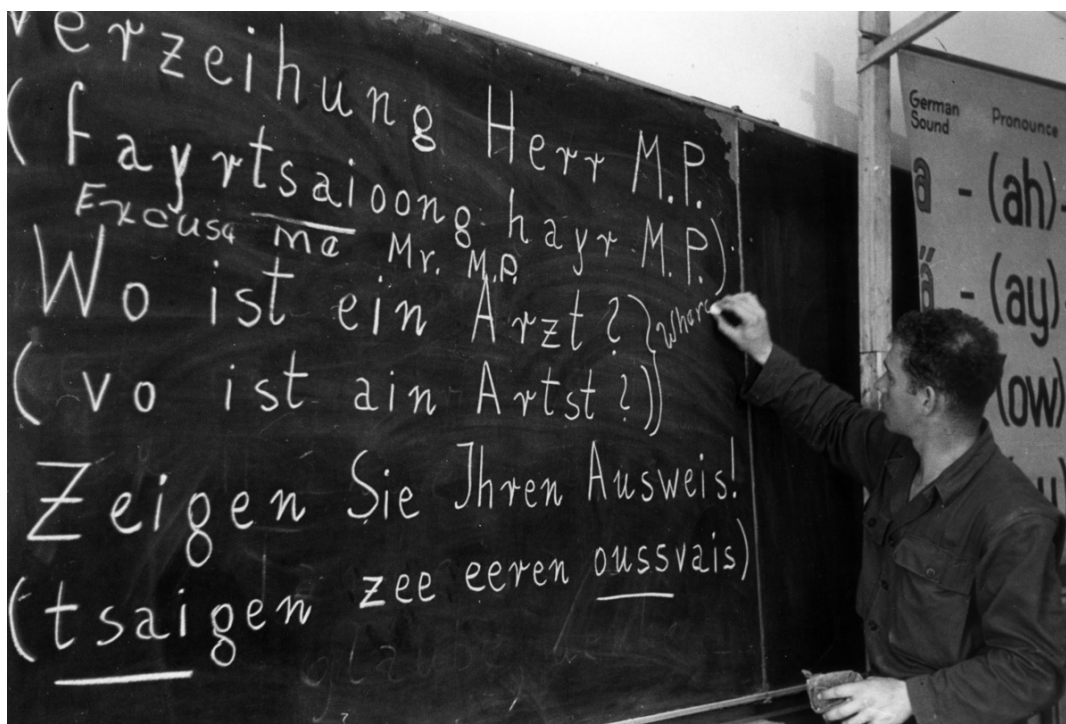 Verzeihung Herr M.P.
(fayrtsaioong hayr M.P.)
Excuse me Mr. M.P.
Wo ist ein Arzt? } (Where
(vo ist ain Artst?))
Zeigen Sie Ihren Ausweis!
(tsaigen zee eeren oussvais)
glaube
German Sound
Pronounce
a - (ah)-
ä - (ay)-
(ow)